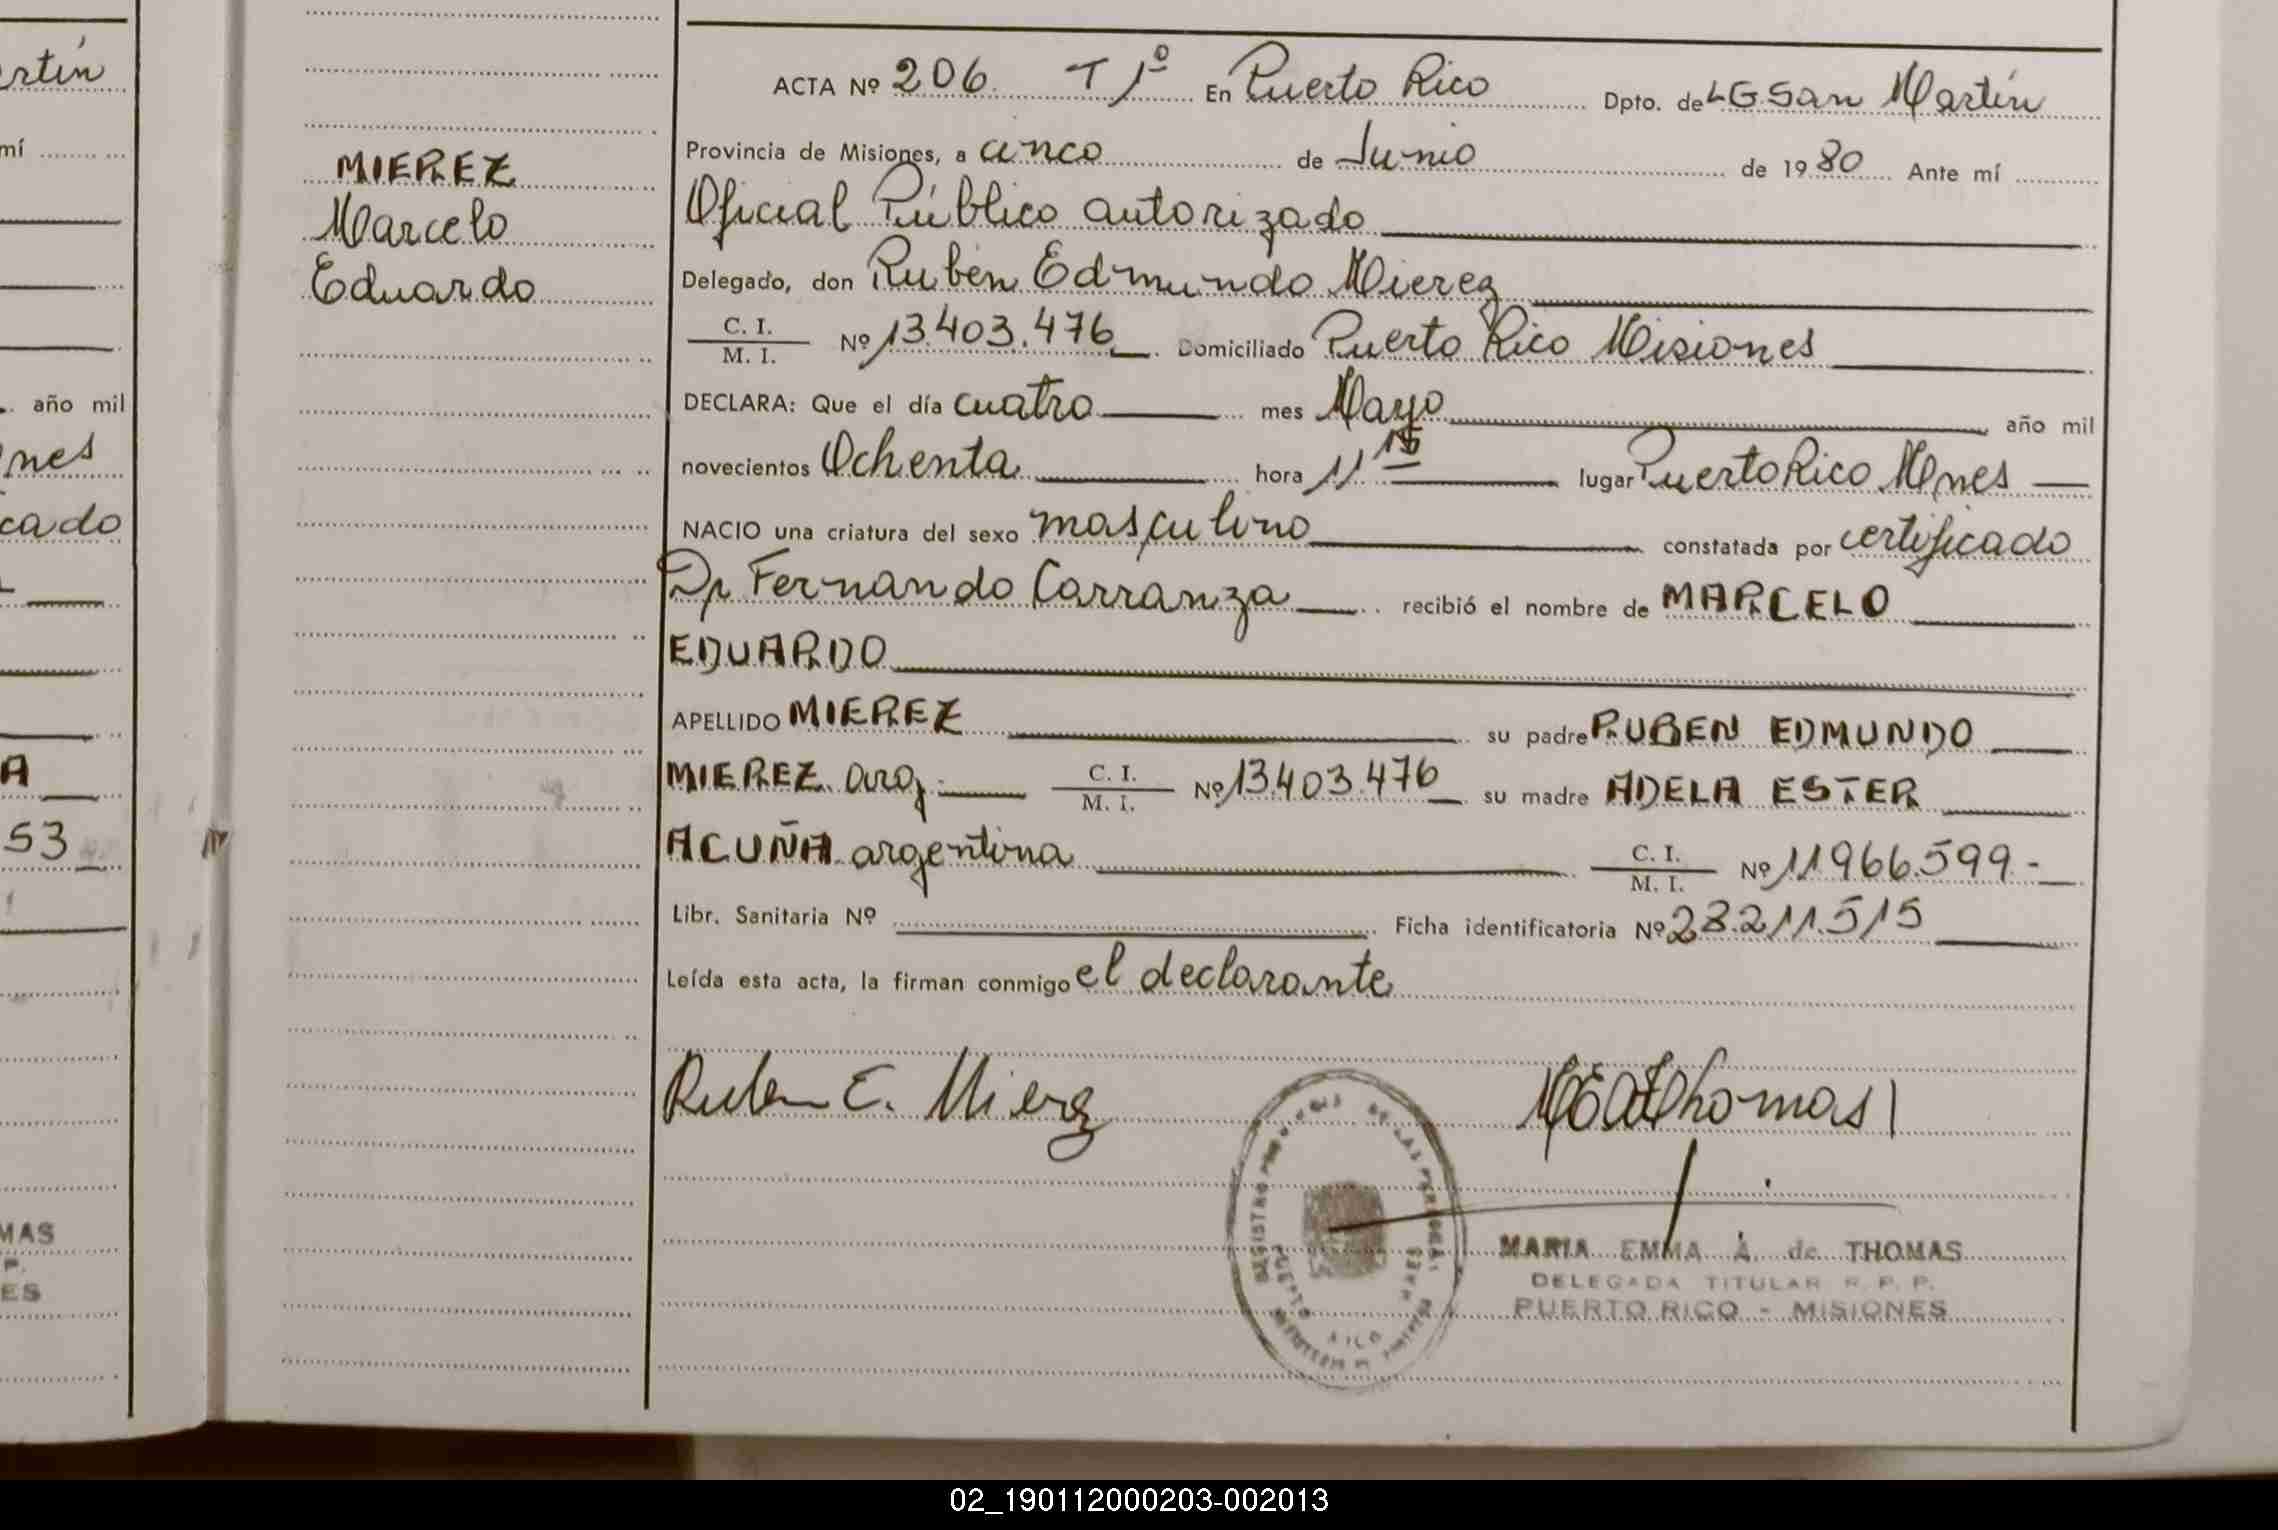 MIEREZ
Marcelo
Eduardo
ACTA Nº 206. T 1º En Puerto Rico Dpto. de L G San Martín
Provincia de Misiones, a cinco de Junio de 1980 Ante mí
Oficial Público autorizado
Delegado, don Rubén Edmundo Mierez
C. I. / M. I. Nº 13.403.476 Domiciliado Puerto Rico Misiones
DECLARA: Que el día cuatro mes Mayo año mil
novecientos Ochenta hora 11 lugar Puerto Rico Mnes
NACIO una criatura del sexo masculino constatada por certificado
Dr Fernando Carranza recibió el nombre de MARCELO
EDUARDO
APELLIDO MIEREZ su padre RUBEN EDMUNDO
MIEREZ arg. C. I. / M. I. Nº 13.403.476 su madre ADELA ESTER
ACUÑA argentina C. I. / M. I. Nº 11.966.599.-
Libr. Sanitaria Nº Ficha identificatoria Nº 28.211.515
Leída esta acta, la firman conmigo el declarante
Ruben E. Mierez
MARIA EMMA A. de THOMAS
DELEGADA TITULAR R. P. P.
PUERTO RICO - MISIONES
rtín
mí
año mil
nes
cado
A
53
MAS
P.
ES
02_190112000203-002013